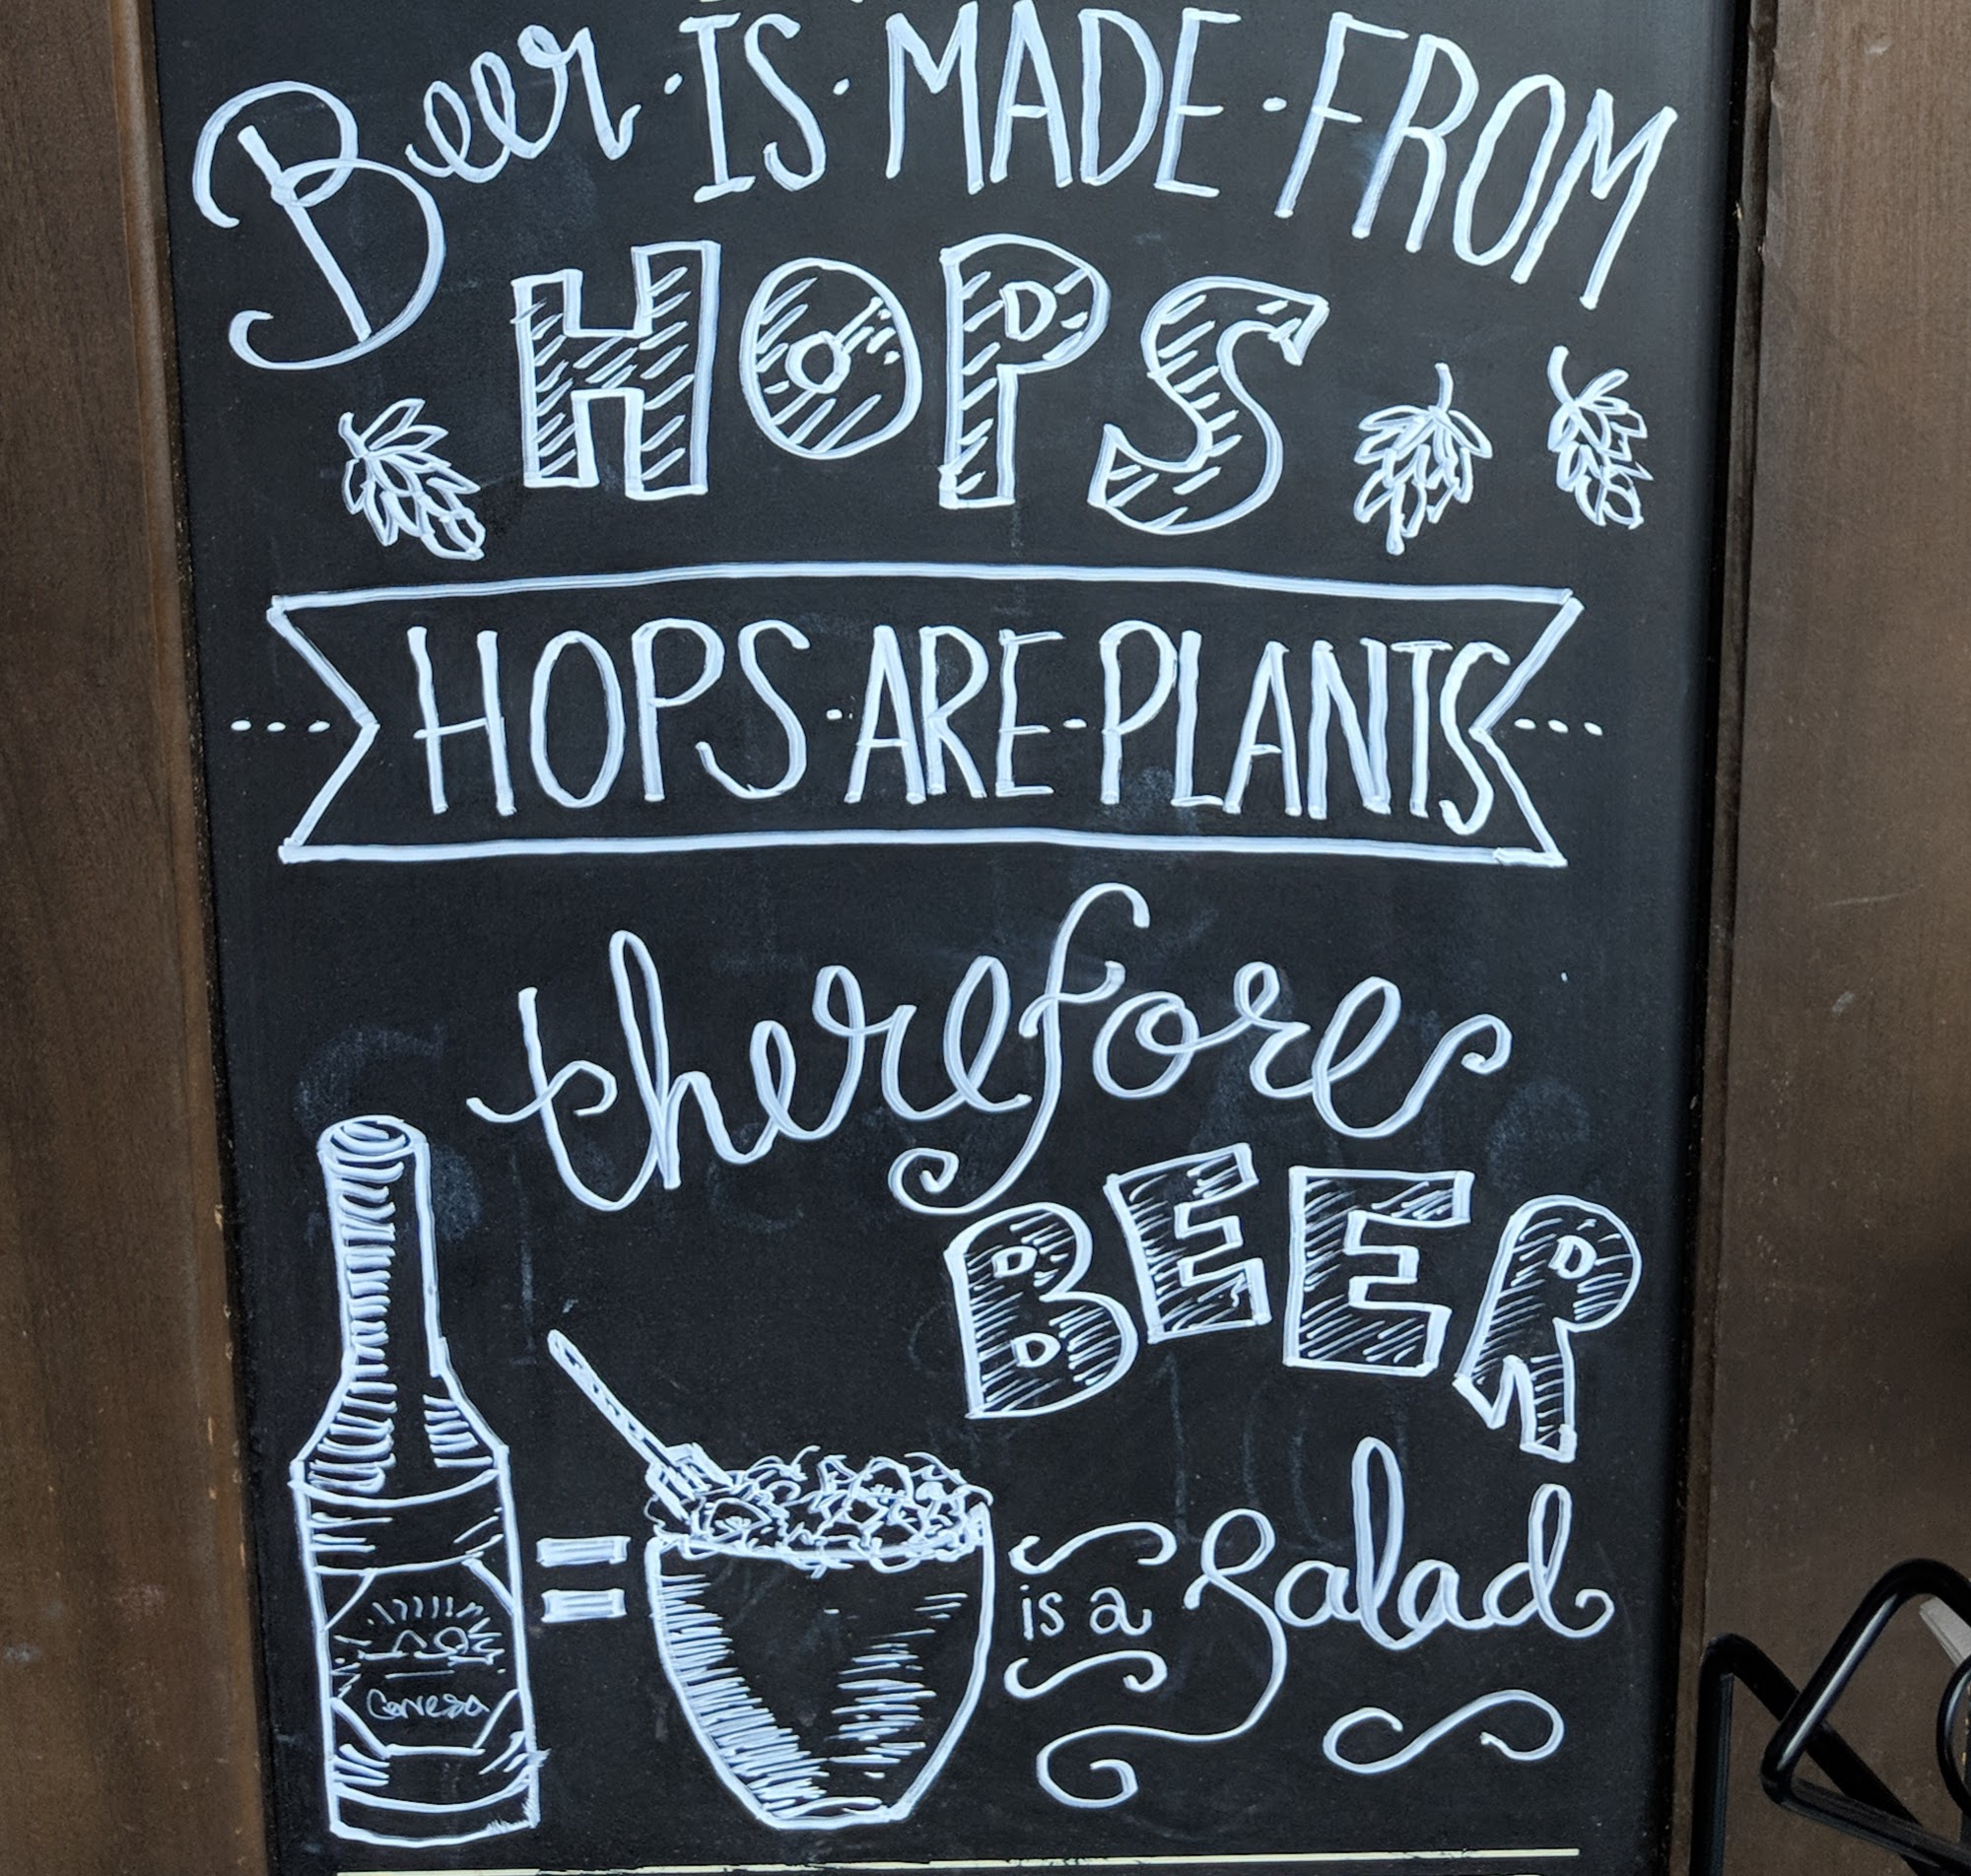 Beer · IS · MADE · FROM
HOPS
HOPS · ARE · PLANTS
therefore
BEER
is a Salad
Cerveza